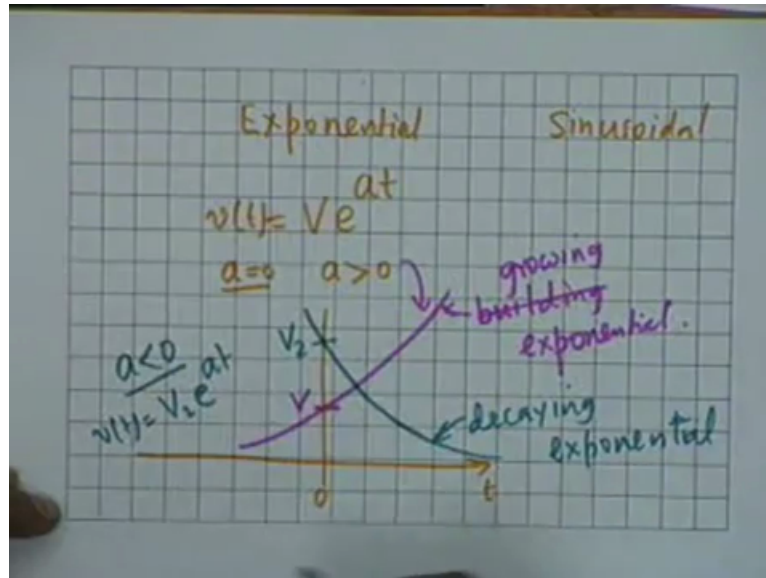 Exponential Sinusoidal
v(t)= Ve^at
a=0 a>0
growing
building
exponential.
a<0
v(t)= V₂e^at
V₂
V
decaying
exponential
0 t